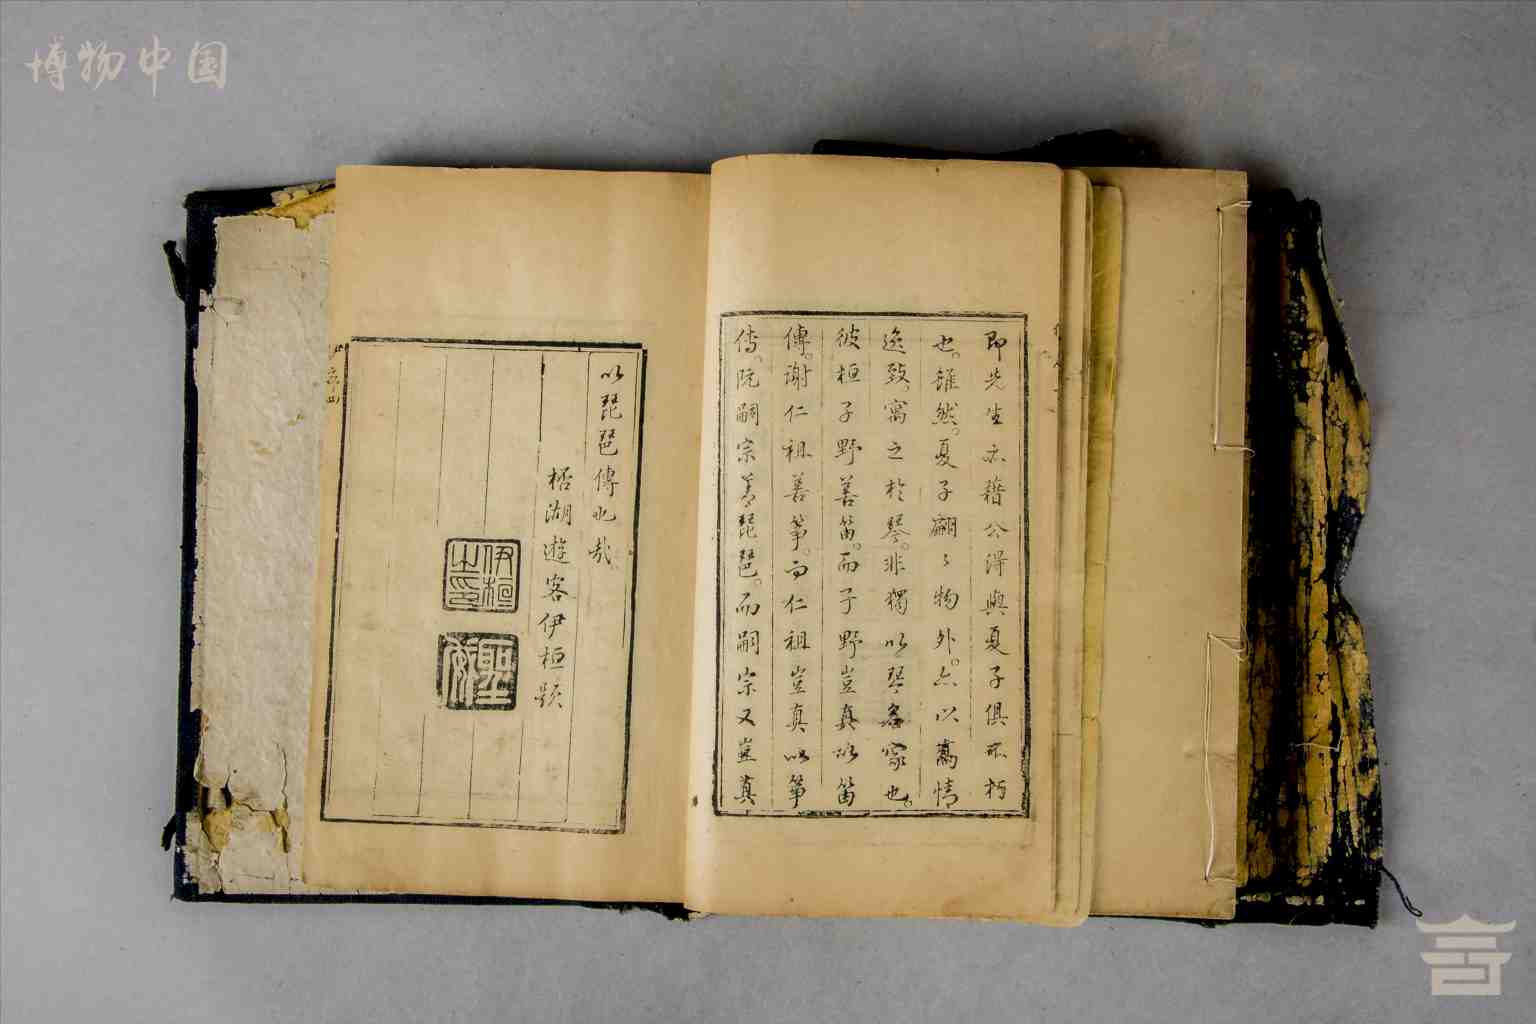 博物中国
即先生亦藉公得與夏子俱不朽
也。雖然。夏子翩々物外。亦以高情
逸致。寓之於琴。非獨以琴名家也。
彼桓子野善笛。而子野豈真以笛
傳。謝仁祖善箏。而仁祖豈真以箏
傳。阮嗣宗善琵琶。而嗣宗又豈真
以琵琶傳也哉
梧湖遊客伊桓題
伊桓之印